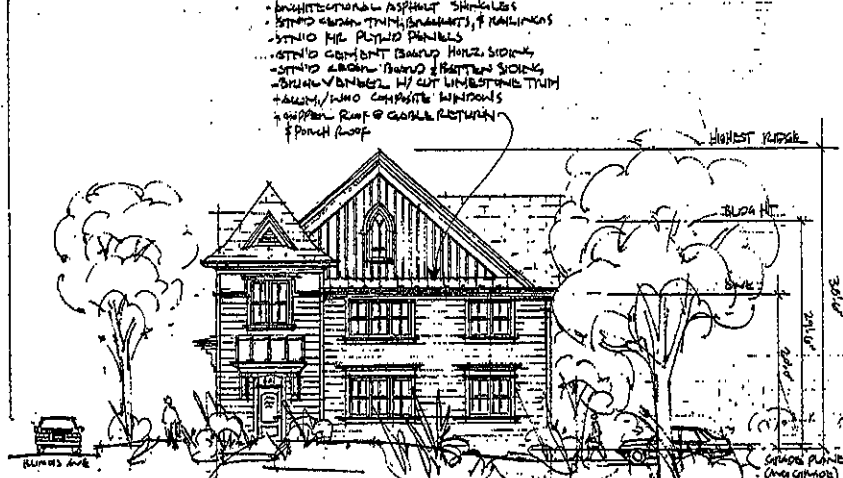 - ARCHITECTURAL ASPHALT SHINGLES
- STN'D CEDAR TRIM, BRACKETS, & RAILINGS
- STN'D FIR PLYWD PANELS
- STN'D CEMENT BOARD HORIZ. SIDING
- STN'D CEDAR BOARD & BATTEN SIDING
- BRICK VENEER W/ CUT LIMESTONE TRIM
- ALUM./WD COMPOSITE WINDOWS
- COPPER ROOF @ GABLE RETURN
& PORCH ROOF
HIGHEST RIDGE
BLDG HT.
EAVE
GRADE PLANE
(AVG GRADE)